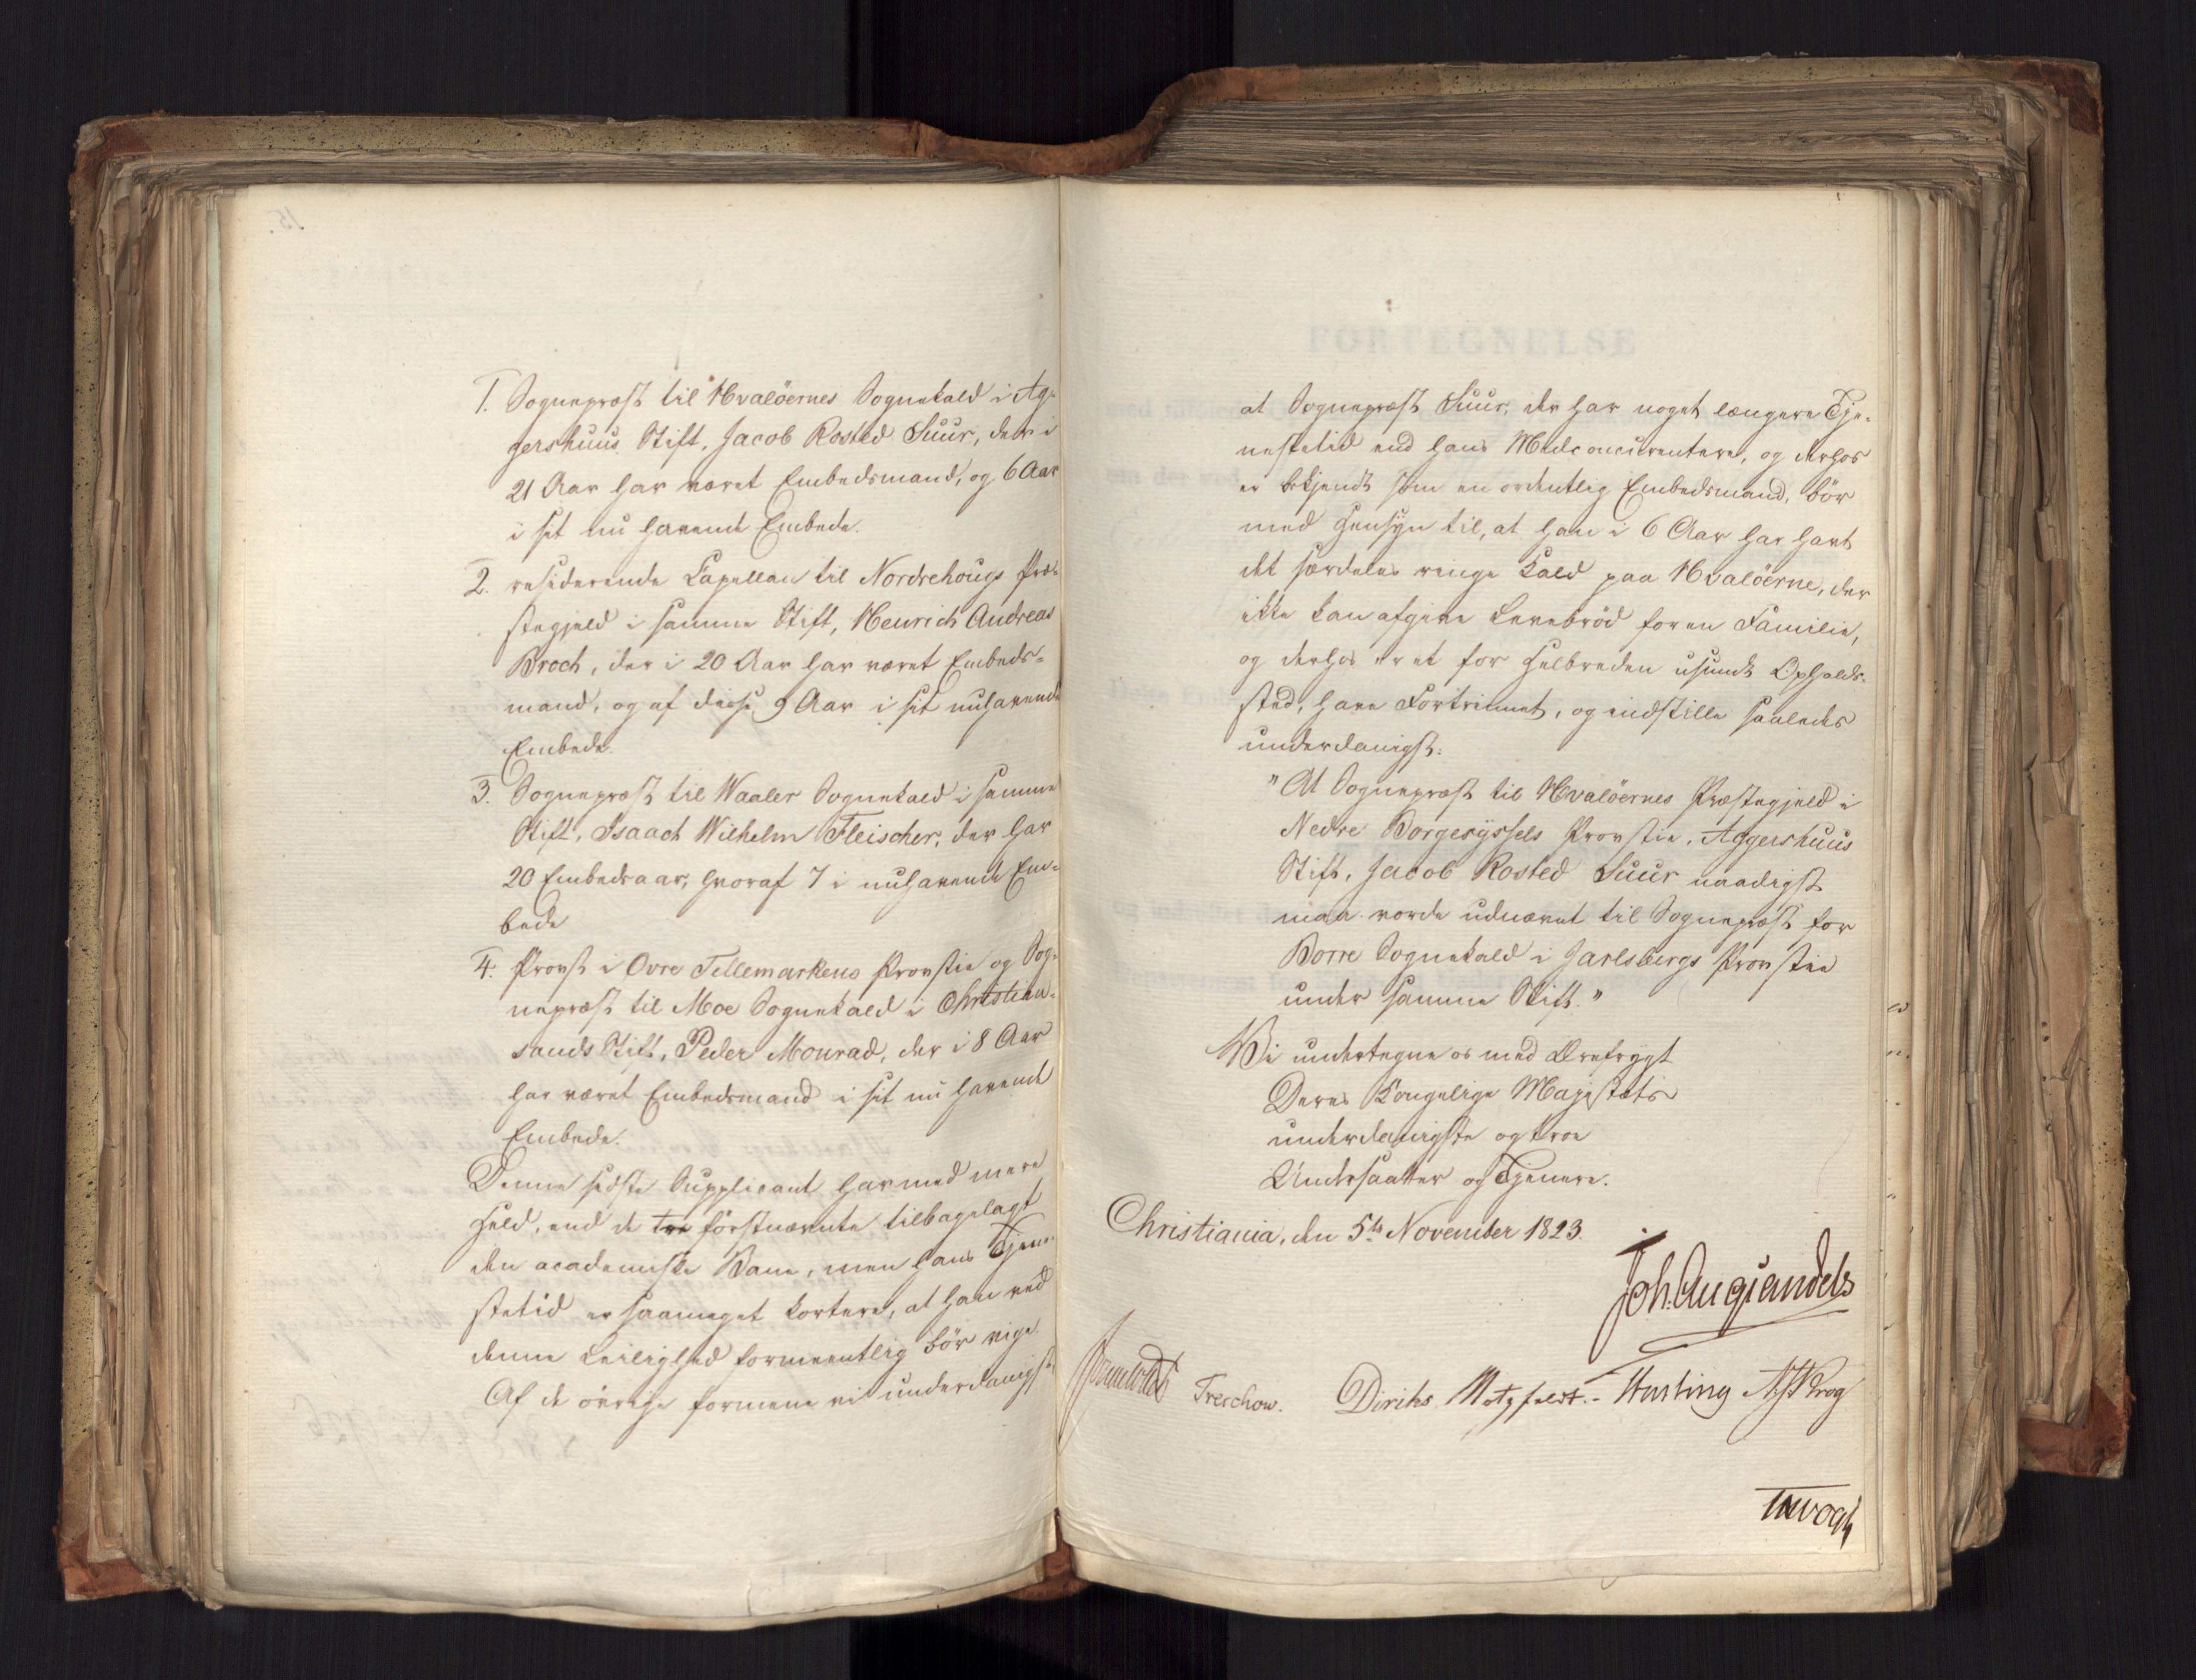 1. Sognepræst til Hvalöernes Sognekald i Ag-
gershuus Stift, Jacob Rosted Suur, der i
21 Aar har været Embedsmand, og 6 Aar
i sit nu havende Embede.
2. residerende Capellan til Nordrehougs Præ-
stegjeld i samme Stift, Henrich Andreas
Broch, der i 20 Aar har været Embeds-
mand, og af disse 9 Aar i sit nuhavende
Embede.
3. Sognepræst til Waaler Sognekald i samme
Stift, Isaach Wilhelm Fleischer, der har
20 Embedsaar, hvoraf 7 i nuhavende Em-
bede
4. Provst i Övre Tellemarkens Provstie og Sog-
nepræst til Moe Sognekald i Christian-
sands Stift, Peder Monrad, der i 8 Aar
har været Embedsmand i sit nu havende
Embede.
Denne sidste Supplicant har med mere
Held, end de tre förstnævnte tilbagelagt
den academiske Bane, men hans Tjene-
stetid er saameget kortere, at han ved
denne Leilighed formeentlig bör vige.
Af de övrige formene vi underdanigst
at Sognepræst Suur, der har noget længere Tje-
nestetid end hans Medconcurrentere, og derhos
er bekjendt som en ordentlig Embedsmand, bör
med Hensyn til, at han i 6 Aar har havt
det særdeles ringe Kald paa Hvalöerne, der
ikke kan afgive Levebröd for en Familie,
og derhos er et for Helbreden usundt Opholds-
sted, have Fortrinnet, og indstille saaledes
underdanigst:
"At Sognepræst til Hvalöernes Præstegjeld i
Nedre Borgesyssels Provstie, Aggershuus
Stift, Jacob Rosted Suur naadigst
maa vorde udnævnt til Sognepræst for
Borre Sognekald i Jarlsbergs Provstie
under samme Stift."
Vi undertegne os med Ærefrygt
Deres Kongelige Majestæts
underdanigste og troe
Undersaatter og Tjenere.
Christiania, den 5te November 1823.
Joh. Aug. Sandels
Sommerhielm Treschow. Diriks Motzfeldt. Hasting Krog
Vogt
FORTEGNELSE